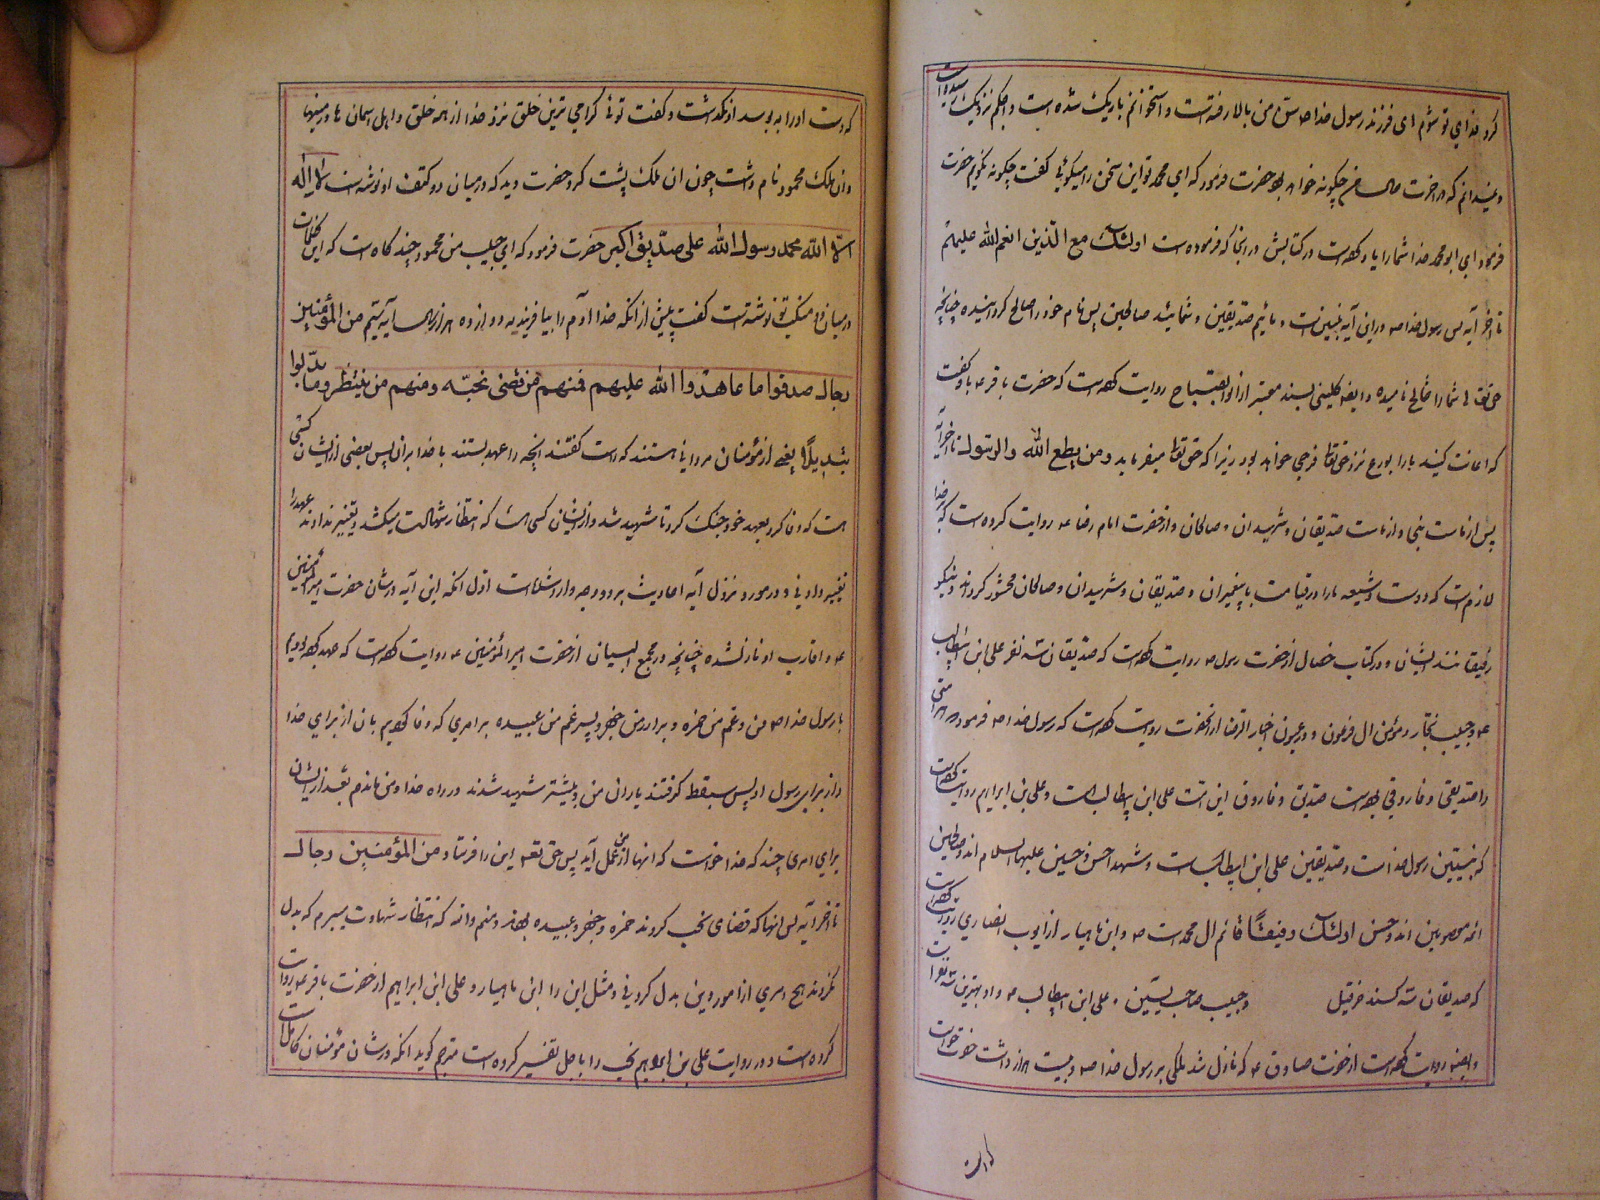 کرد فدای تو شوم ای فرزند رسول خدا ص سن من بالا رفته است و استخوانم باریک شده است و اجلم نزدیک رسیده است
و نمیدانم که در آخرت حال من چگونه خواهد بود حضرت فرمود که ای ابو محمد تو این سخن را میگوئی گفت چگونه نگویم حضرت
فرمود ای ابو محمد خدا شما را یاد کرده است در کتابش در آنجا که فرموده است اولئک مع الذین انعم الله علیهم
تا آخر آیه پس رسول خدا ص در این آیه نبیین است و مائیم صدیقین و شمائید صالحین پس نام خود را صالح گردانیده چنانچه
حق تعالی شما را صالح نامیده و ایضا کلینی بسند معتبر از ابو الصباح روایت کرده است که حضرت باقر ع باو گفت
که اعانت کنید ما را بورع نزد حق تعالی فرجی خواهد بود زیرا که حق تعالی میفرماید و من یطع الله والرسول تا آخر آیه
پس از ماست نبی و از ماست صدیقان و شهیدان و صالحان و از حضرت امام رضا ع روایت کرده است که بر خدا
لازم است که دوست و شیعه ما را در قیامت با پیغمبران و صدیقان و شهیدان و صالحان محشور گرداند و نیکو
رفیقانند ایشان و در کتاب خصال از حضرت رسول ص روایت کرده است که صدیقان سه نفرند علی ابن ابیطالب
ع و حبیب نجار و مؤمن آل فرعون و در عیون اخبار الرضا از آنحضرت روایت کرده است که رسول خدا ص فرمود هر امتی
را صدیقی و فاروقی بوده است صدیق و فاروق این امت علی ابن ابیطالب است و علی بن ابراهیم روایت کرده است
که نبیین رسول خداست و صدیقین علی ابن ابیطالب است و شهدا حسن و حسین علیهما السلام اند و صالحین
ائمه معصومین اند و حسن اولئک رفیقا قائم آل محمد است ص و ابن ماهیار از ابو ایوب انصاری روایت کرده است
که صدیقان سه کسند حزقیل و حبیب صاحب یسین و علی ابن ابیطالب ع و او بهترین سه نفر است
و ایضا روایت کرده است از حضرت صادق ع که نازل شد ملکی بر رسول خدا ص و بیست هزار سر داشت حضرت خواست
که دست او را ببوسد او نگذاشت و گفت توئی گرامی ترین خلق نزد خدا از همه خلق و اهل آسمان ها و زمینها
و آن ملک محمود نام داشت چون آن ملک پشت کرد حضرت دید که در میان دو کتف او نوشته است لا اله
الا الله محمد رسول الله علی صدیق اکبر حضرت فرمود که ای حبیب من محمود چند گاه است که این کلمات
در میان دو منکب تو نوشته است گفت پیش از آنکه خدا آدم را بیافریند به دوازده هزار سال آیه بیستم من المؤمنین
رجال صدقوا ما عاهدوا الله علیهم فمنهم من قضی نحبه و منهم من ینتظر و ما بدلوا
تبدیلا یعنی از مؤمنان مردانی هستند که راست گفتند آنچه را عهد بستند با خدا بر آن پس بعضی از ایشان کسی
است که وفا کرد بعهد خود و جنگ کرد تا شهید شد و از ایشان کسی است که انتظار شهادت میکشد و تغییر ندادند عهد را
تغییر دادنی و در مورد نزول آیه احادیث بر دو وجه وارد شده است اول آنکه این آیه در شان حضرت امیر المؤمنین
ع و اقارب او نازل شده چنانچه در مجمع البیان از حضرت امیر المؤمنین ع روایت کرده است که عهد کرده بودیم
با رسول خدا ص من و عمم حمزه و برادرمن جعفر و پسر عم من عبیده بر امری که وفا کردیم بآن از برای خدا
و از برای رسول او پس سبقت گرفتند یاران من و پیشتر شهید شدند در راه خدا و من ماندم بعد از ایشان
برای امری چند که خدا خواست که آنها از من بعمل آید پس حق تعالی این را فرستاد من المؤمنین رجال
تا آخر آیه پس آنها که قضای نحب کردند حمزه و جعفر و عبیده بودند و منم والله که انتظار شهادت میبرم که بدل
نکردند هیچ امری از امور دین بدل کردنی و مثل این را ابن ماهیار و علی ابن ابراهیم از حضرت باقر ع روایت
کرده است و در روایت علی بن ابراهیم نحب را باجل تفسیر کرده است مترجم گوید آنکه در شان مؤمنان کامل است